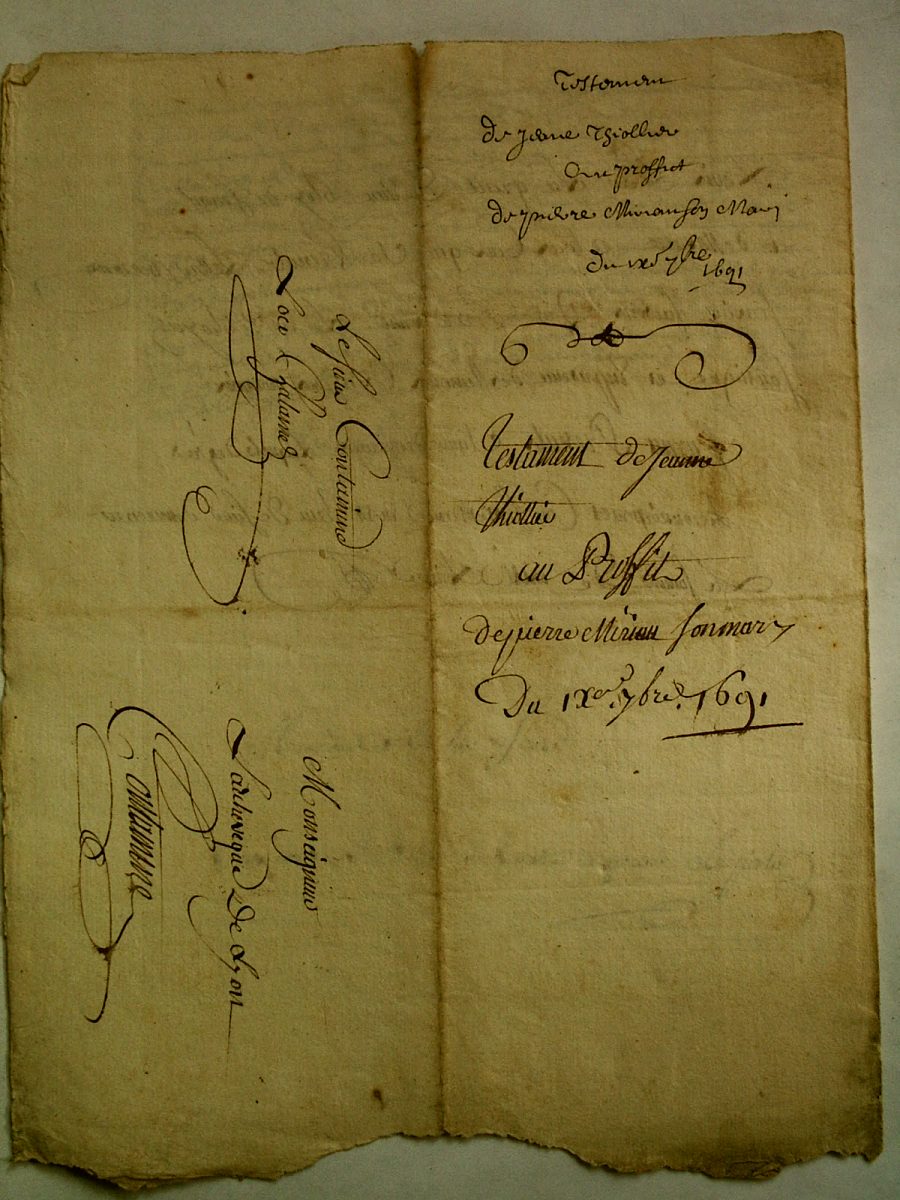 Testament
de jeane Thiollier
au proffict
de pierre Mirian son Mary
du ixe 7bre 1691
Testament de Jeanne
Thiollie
au Proffit
de pierre Mirian son mary
Du 1xe. 7bre. 1691
Le sieur Contamine
Loco
Monseigneur
L'archeveque De Lyon
Contamine